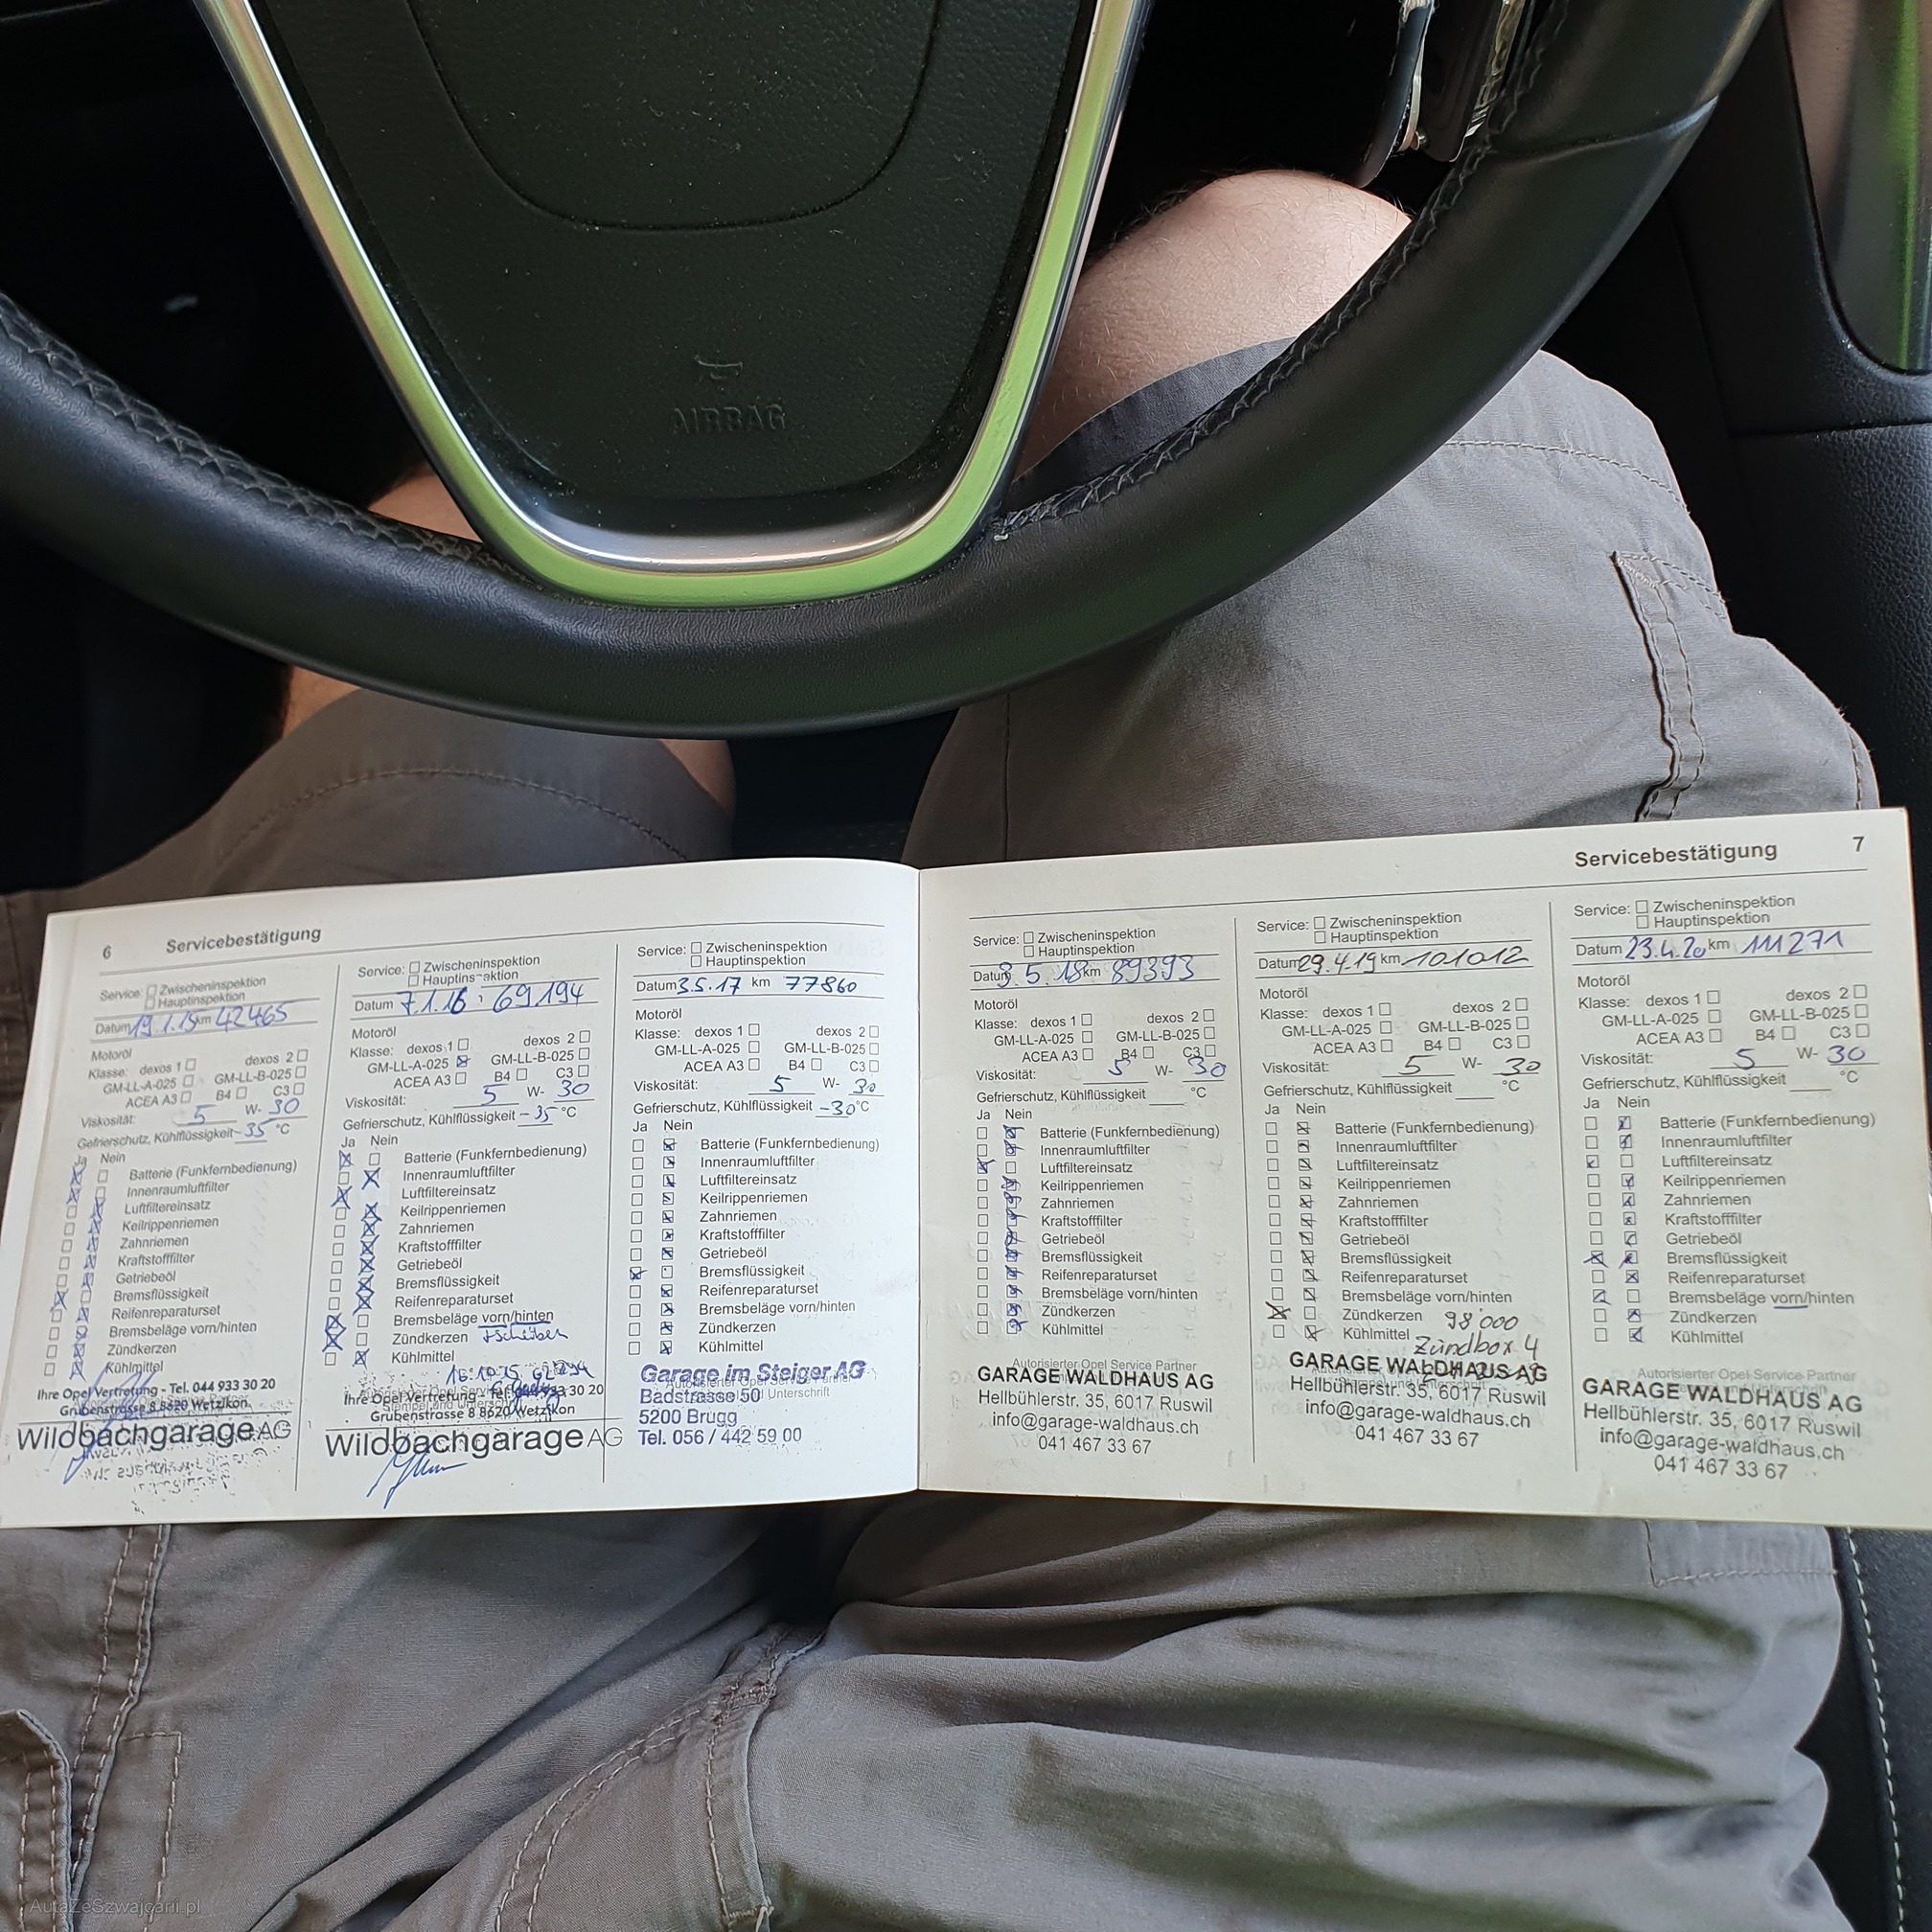 AIRBAG
6 Servicebestätigung
Service: Zwischeninspektion
Hauptinspektion
Datum 19.1.15 km 42465
Motoröl
Klasse: dexos 1 dexos 2
GM-LL-A-025 GM-LL-B-025
ACEA A3 B4 C3
Viskosität: 5 W- 30
Gefrierschutz, Kühlflüssigkeit -35 °C
Ja Nein
Batterie (Funkfernbedienung)
Innenraumluftfilter
Luftfiltereinsatz
Keilrippenriemen
Zahnriemen
Kraftstofffilter
Getriebeöl
Bremsflüssigkeit
Reifenreparaturset
Bremsbeläge vorn/hinten
Zündkerzen
Kühlmittel
Ihre Opel Vertretung - Tel. 044 933 30 20
Grubenstrasse 8 8620 Wetzikon
Wildbachgarage AG
Service: Zwischeninspektion
Hauptinspektion
Datum 7.1.16 69194
Motoröl
Klasse: dexos 1 dexos 2
GM-LL-A-025 GM-LL-B-025
ACEA A3 B4 C3
Viskosität: 5 W- 30
Gefrierschutz, Kühlflüssigkeit -35 °C
Ja Nein
Batterie (Funkfernbedienung)
Innenraumluftfilter
Luftfiltereinsatz
Keilrippenriemen
Zahnriemen
Kraftstofffilter
Getriebeöl
Bremsflüssigkeit
Reifenreparaturset
Bremsbeläge vorn/hinten
Zündkerzen +Scheiben
Kühlmittel
16.10.15
Ihre Opel Vertretung - Tel. 933 30 20
Grubenstrasse 8 8620 Wetzikon
Wildbachgarage AG
Service: Zwischeninspektion
Hauptinspektion
Datum 3.5.17 km 77860
Motoröl
Klasse: dexos 1 dexos 2
GM-LL-A-025 GM-LL-B-025
ACEA A3 B4 C3
Viskosität: 5 W- 30
Gefrierschutz, Kühlflüssigkeit -30 °C
Ja Nein
Batterie (Funkfernbedienung)
Innenraumluftfilter
Luftfiltereinsatz
Keilrippenriemen
Zahnriemen
Kraftstofffilter
Getriebeöl
Bremsflüssigkeit
Reifenreparaturset
Bremsbeläge vorn/hinten
Zündkerzen
Kühlmittel
Garage im Steiger AG
Badstrasse 50
5200 Brugg
Tel. 056 / 442 59 00
Servicebestätigung 7
Service: Zwischeninspektion
Hauptinspektion
Datum 3.5.18 km 89393
Motoröl
Klasse: dexos 1 dexos 2
GM-LL-A-025 GM-LL-B-025
ACEA A3 B4 C3
Viskosität: 5 W- 30
Gefrierschutz, Kühlflüssigkeit °C
Ja Nein
Batterie (Funkfernbedienung)
Innenraumluftfilter
Luftfiltereinsatz
Keilrippenriemen
Zahnriemen
Kraftstofffilter
Getriebeöl
Bremsflüssigkeit
Reifenreparaturset
Bremsbeläge vorn/hinten
Zündkerzen
Kühlmittel
Autorisierter Opel Service Partner
GARAGE WALDHAUS AG
Hellbühlerstr. 35, 6017 Ruswil
info@garage-waldhaus.ch
041 467 33 67
Service: Zwischeninspektion
Hauptinspektion
Datum 29.4.19 km 101012
Motoröl
Klasse: dexos 1 dexos 2
GM-LL-A-025 GM-LL-B-025
ACEA A3 B4 C3
Viskosität: 5 W- 30
Gefrierschutz, Kühlflüssigkeit °C
Ja Nein
Batterie (Funkfernbedienung)
Innenraumluftfilter
Luftfiltereinsatz
Keilrippenriemen
Zahnriemen
Kraftstofffilter
Getriebeöl
Bremsflüssigkeit
Reifenreparaturset
Bremsbeläge vorn/hinten
Zündkerzen 98'000
Kühlmittel Zündbox 4
GARAGE WALDHAUS AG
Hellbühlerstr. 35, 6017 Ruswil
info@garage-waldhaus.ch
041 467 33 67
Service: Zwischeninspektion
Hauptinspektion
Datum 23.4.20 km 111271
Motoröl
Klasse: dexos 1 dexos 2
GM-LL-A-025 GM-LL-B-025
ACEA A3 B4 C3
Viskosität: 5 W- 30
Gefrierschutz, Kühlflüssigkeit °C
Ja Nein
Batterie (Funkfernbedienung)
Innenraumluftfilter
Luftfiltereinsatz
Keilrippenriemen
Zahnriemen
Kraftstofffilter
Getriebeöl
Bremsflüssigkeit
Reifenreparaturset
Bremsbeläge vorn/hinten
Zündkerzen
Kühlmittel
Autorisierter Opel Service Partner
GARAGE WALDHAUS AG
Hellbühlerstr. 35, 6017 Ruswil
info@garage-waldhaus.ch
041 467 33 67
AutaZeSzwajcarii.pl